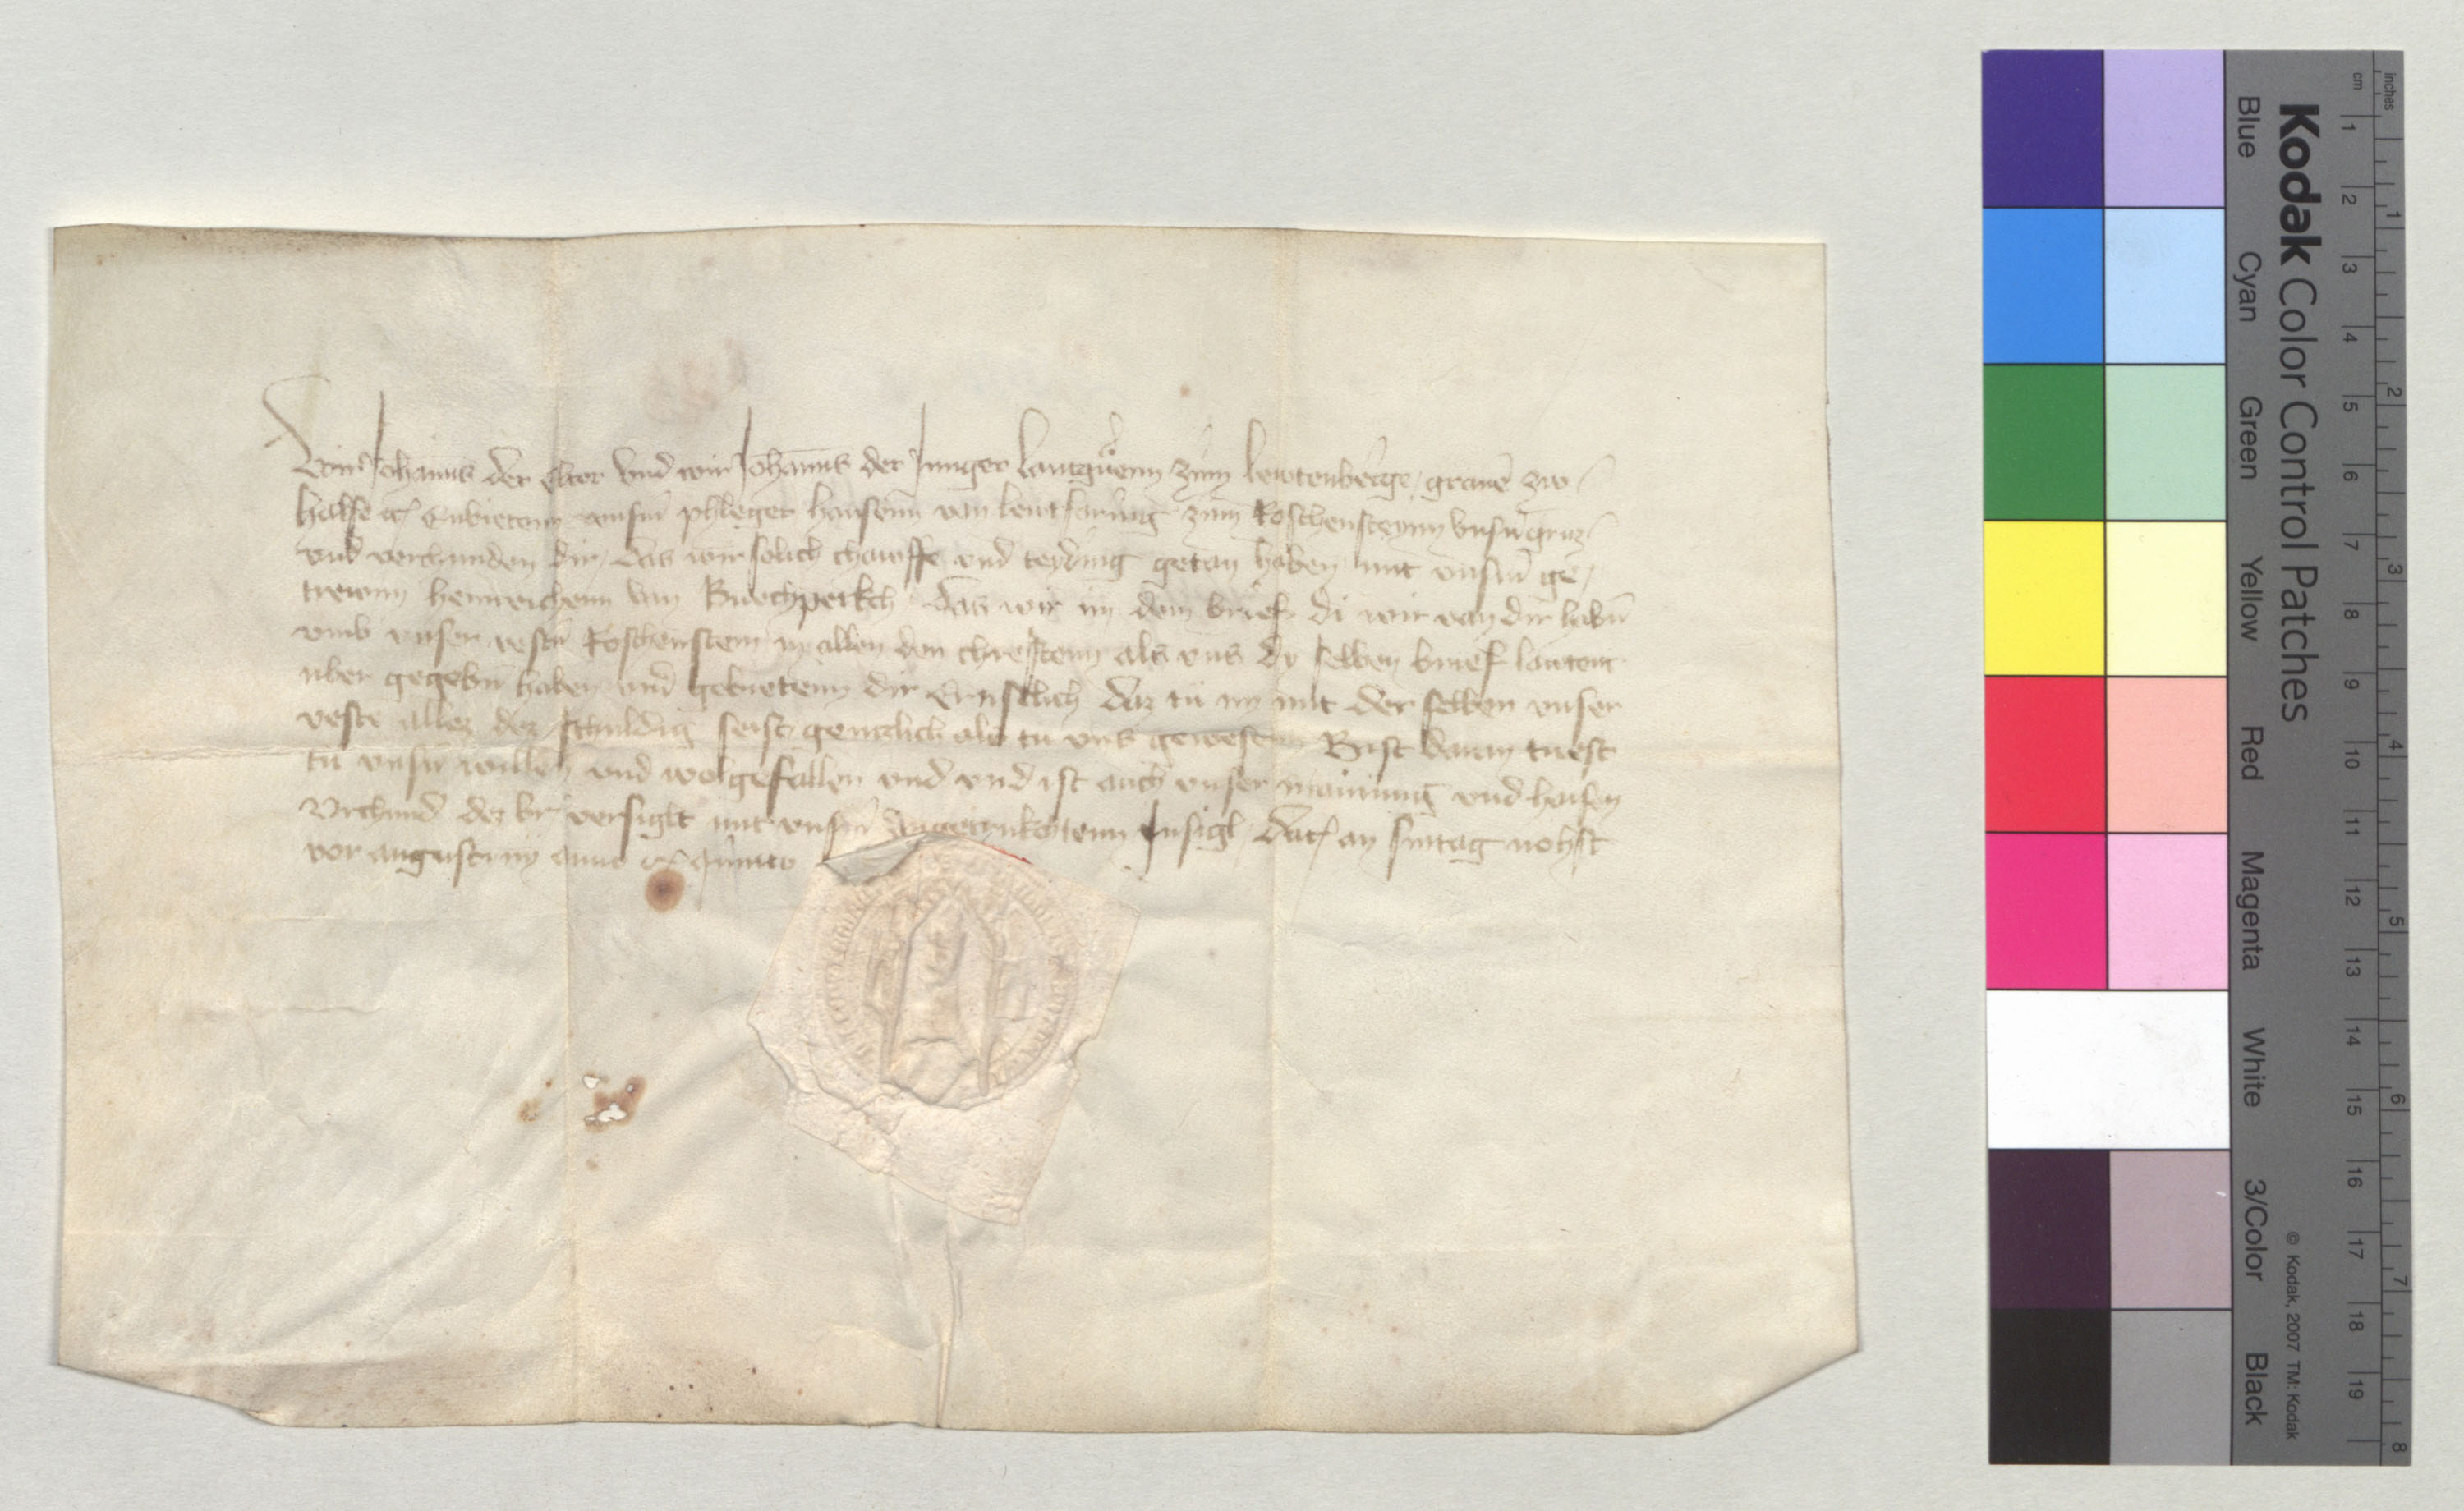 Wir Johanns der Elter vnd wir Johanns der Junger lantgrͣuenn zum lewtenberge / grauē zw
halse ꝛc Enbietenn vnsm̄ phleger hansenn van lewtfaring zum Roschensteynn vnsn̄ gruz
vnd verchunden dir / das wir solich chawffe vnd teyding getan haben mit vnsm̄ ge /
trewnn heinreichenn van Buechperkch das wir im dem brief di wir van dir habn̄
vmb vnser vestn̄ Roschenstein in allen den chreftenn als vns dy selben brief lautent
vber gegebn̄ haben vnd gebietenn dir Ernstlich daz tu im mit der selben vnser
veste allez dez schuldig seist genczlich als tu vns gewesen Bist daran tuest
tu vnsn̄ willen vnd wolgefallen vnd vnd ist auch vnser mainung vnd haisen
Vrchund dez br versiglt mit vnsm̄ Insigl dat an suntag nohst
vor augustiny anno ꝛc quinto
Kodak Color Control Patches
Blue Cyan Green Yellow Red Magenta White 3/Color Black
© Kodak, 2007 TM: Kodak
cm 1 2 3 4 5 6 7 8 9 10 11 12 13 14 15 16 17 18 19
inches 1 2 3 4 5 6 7 8